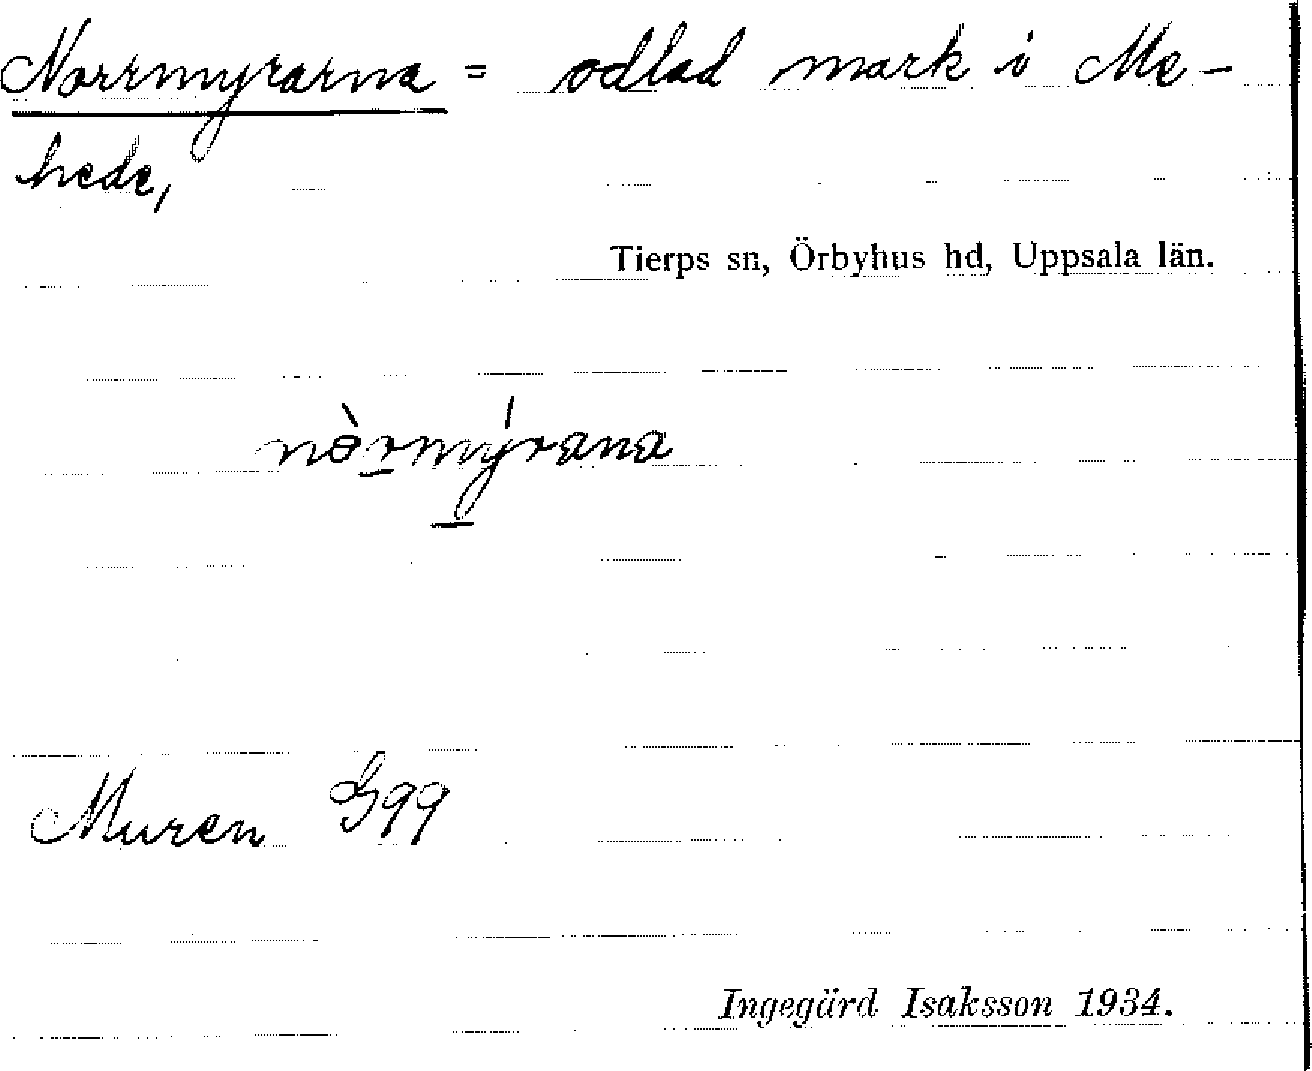 Norrmyrarna = odlad mark i Me-
hede,
Tierps sn, Örbyhus hd, Uppsala län.
nòrmýrana
Muren G99
Ingegärd Isaksson 1934.